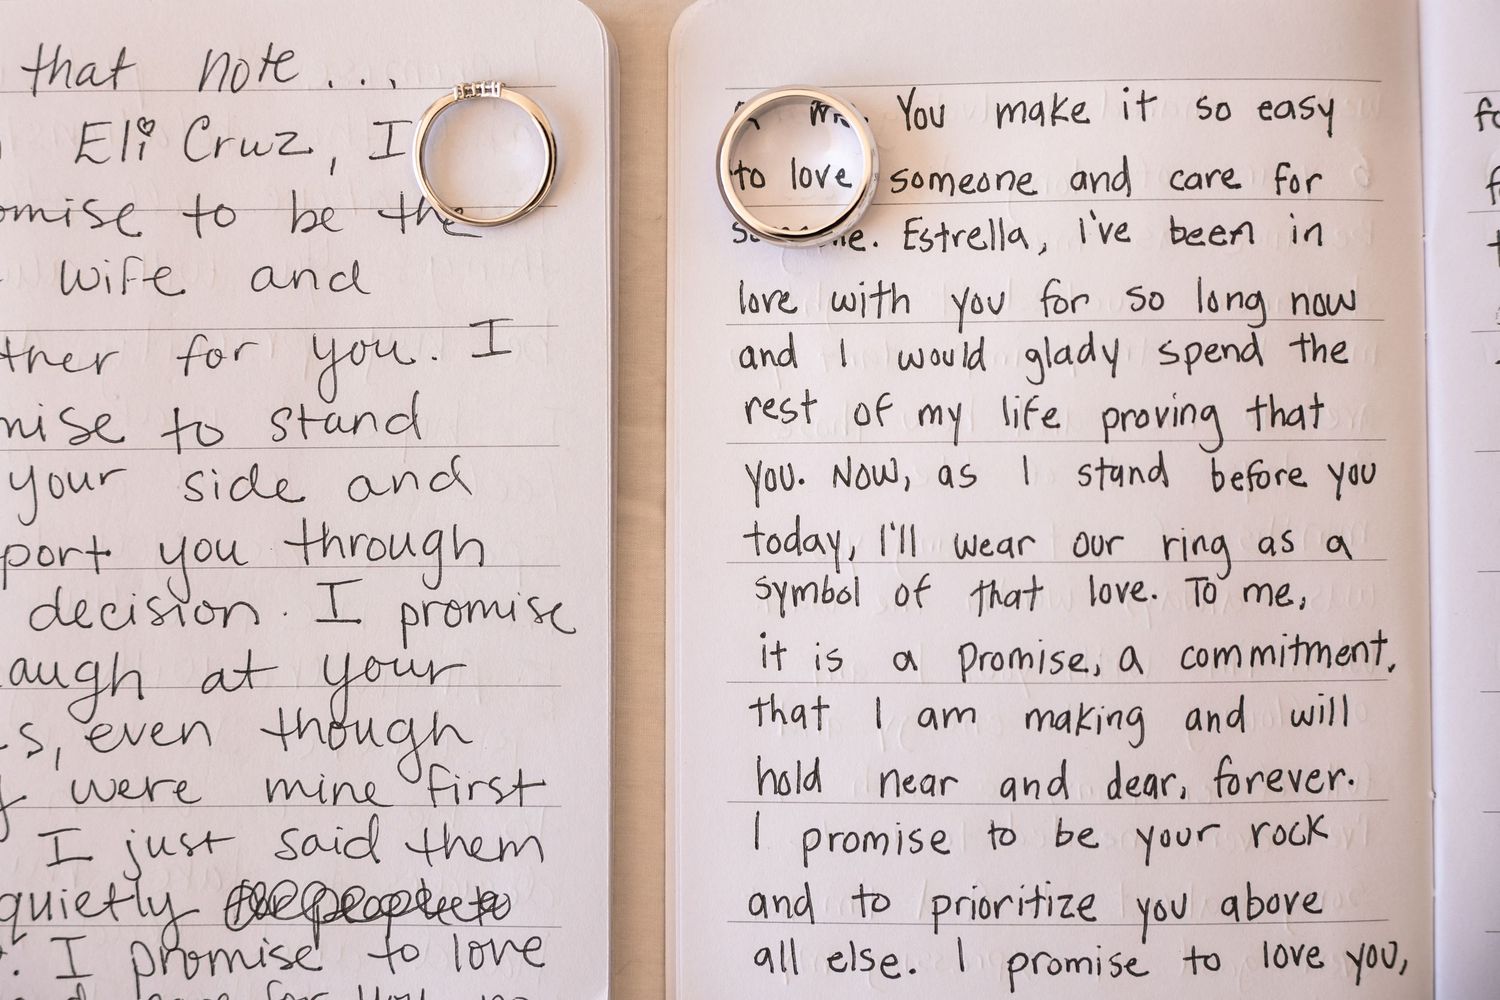 that note...
Eli Cruz, I
to be the
wife and
for you. I
to stand
your side and
you through
decision. I promise
at your
even though
were mine first
I just said them
quietly
I promise to love
You make it so easy
to love someone and care for
Estrella, i've been in
love with you for so long now
and I would glady spend the
rest of my life proving that
you. Now, as I stand before you
today, I'll wear our ring as a
symbol of that love. To me,
it is a promise, a commitment,
that I am making and will
hold near and dear, forever.
I promise to be your rock
and to prioritize you above
all else. I promise to love you,